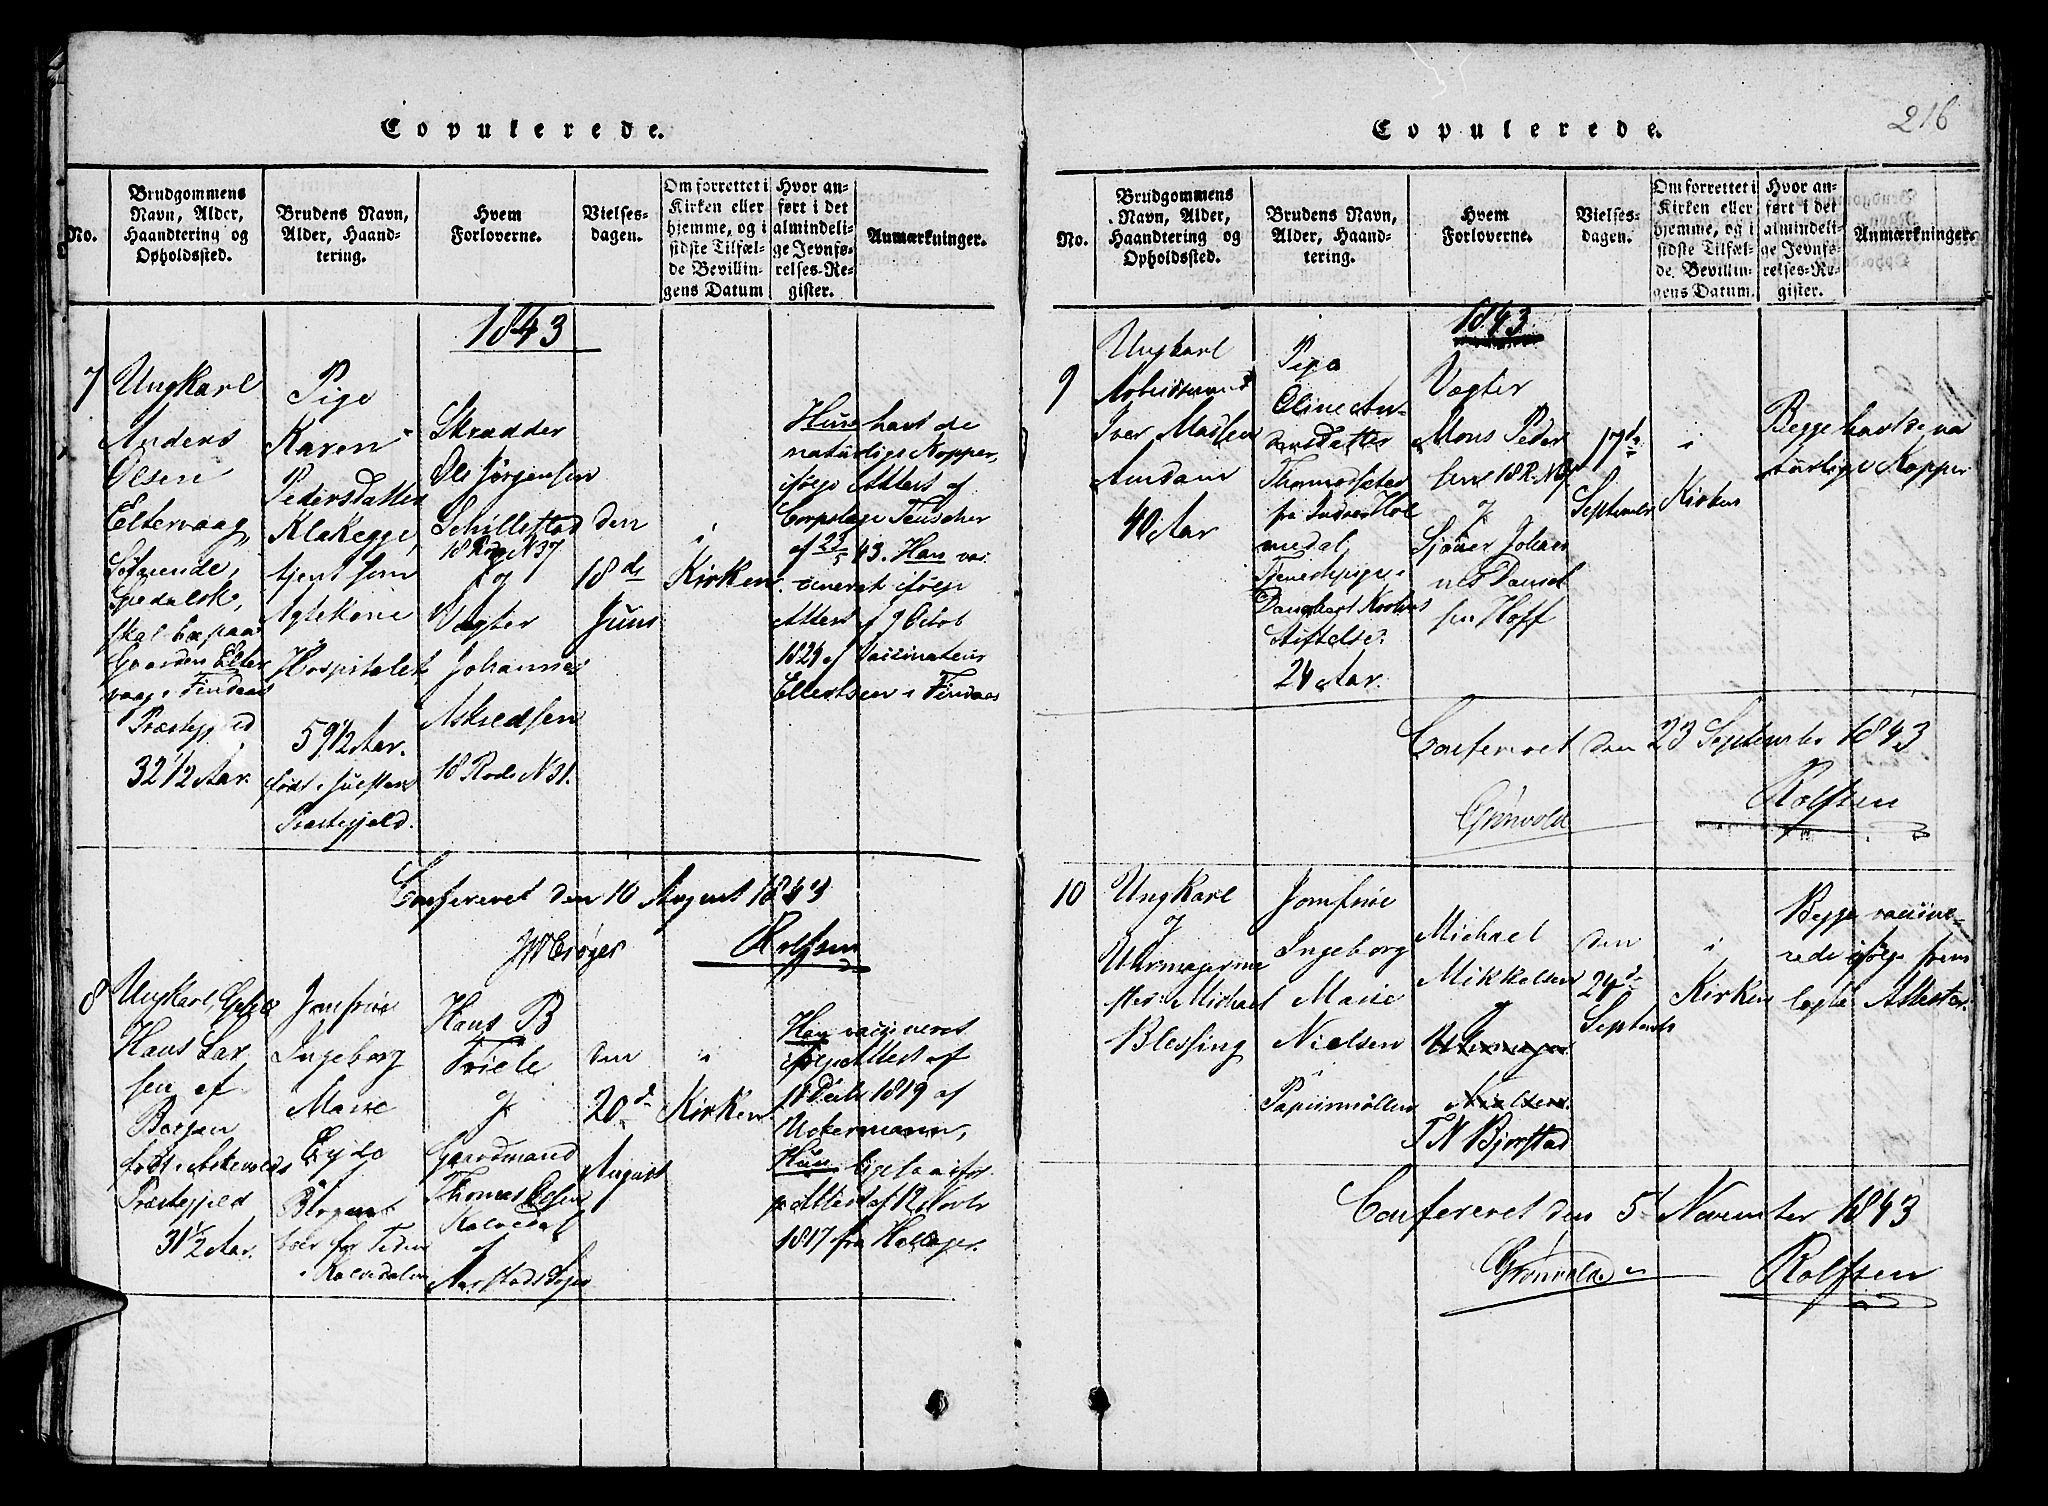 Copulerede.
No.
Brudgommens
Navn, Alder,
Haandtering og
Opholdssted.
Brudens Navn,
Alder, Haand-
tering.
Hvem
Forloverne.
Vielses-
dagen.
Om forrettet i
Kirken eller
hjemme, og i
sidste Tilfæl-
de Bevillin-
gens Datum
Hvor an-
ført i det
almindeli-
ge Jevnfø-
relses-Re-
gister.
Anmærkninger.
1843
7
Ungkarl
Anders
Olsen
Eltervaag,
skal boe paa
Gaarden Elter
vaag i Findaas
Præstegjeld
32 1/2 Aar.
Pige
Karen
Pedersdatter
Klakegge,
tjent som
Hospitalet
59 1/2 Aar.
født i Jølsters
Præstegjeld.
Skrædder
Ole Jørgensen
Schillestad
18 Rode N 37
og
Vægter
Johannes
Askiedsen
18 Rode N 31.
den
18de
Juni
i
Kirken
Hun havt de
naturlige Kopper,
ifølge Attest af
Corpslæge Teuscher
af 23 43. Han vac
cineret ifølge
Attest af 9 Octob
1824 af Vaccinateur
Ellertsen i Findaas
Confereret den 10 August 1843
Rolfsen
8
Ungkarl,
Hans Lar
sen af
Bergen
født i Askevolds
Præstegjeld
31 1/2 Aar.
Jomfrue
Ingeborg
Marie
i Kalvedalen
Hans B
Friele
og
Gaardmand
Thomas Olsen
Kalvedal
af
Aarstads Sogn
den
20de
August
i
Kirken
Han vaccineret
ifølge Attest af
18 1819 af
Uckermann,
Hun ligesaa iføl
ge Attest af 12 Novbr
1817 fra
Copulerede.
216
No.
Brudgommens
Navn, Alder,
Haandtering og
Opholdssted.
Brudens Navn,
Alder, Haand-
tering.
Hvem
Forloverne.
Vielses-
dagen.
Om forrettet i
Kirken eller
hjemme, og i
sidste Tilfæl-
de Bevillin-
gens Datum.
Hvor an-
ført i det
almindeli-
ge Jevnfø-
relses-Re-
gister.
Anmærkninger.
1843
9
Ungkarl
Arbeidsmand
Iver Madsen
Amdam
40 Aar
Pige
Oline An-
dersdatter
fra Indvik
Tjenestepige i
Danckert Krohns
Stiftelse.
24 Aar.
Vægter
Mons Peder
sen 18 R. N
og
Johan
nes Daniel
sen Hoff
17de
September
i
Kirken
Begge havt de na
turlige Kopper
Confereret den 23 September 1843
Grønvold
Rolfsen
10
Ungkarl
og
Uhrmagerme
ster Michael
Blessing
Jomfrue
Ingeborg
Marie
Nielsen
Papiirmøllen
Michael
Mikkelsen
og
Uhrmager
Nielsen
T N Bjørstad
den
24de
September
i
Kirken
Begge vaccine-
rede ifølge frem
lagte Attester.
Confereret den 5 November 1843
Grønvold
Rolfsen